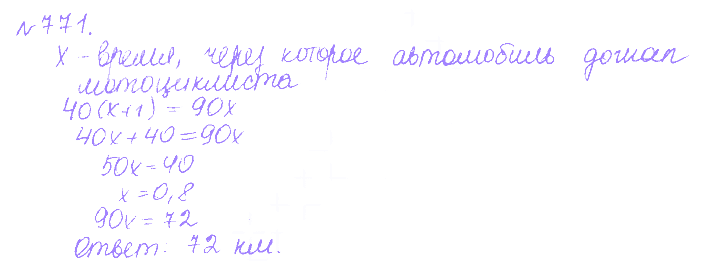 №771.
x - время, через которое автомобиль догнал
мотоциклиста
40(x+1) = 90x
40x + 40 = 90x
50x = 40
x = 0,8
90x = 72
Ответ: 72 км.